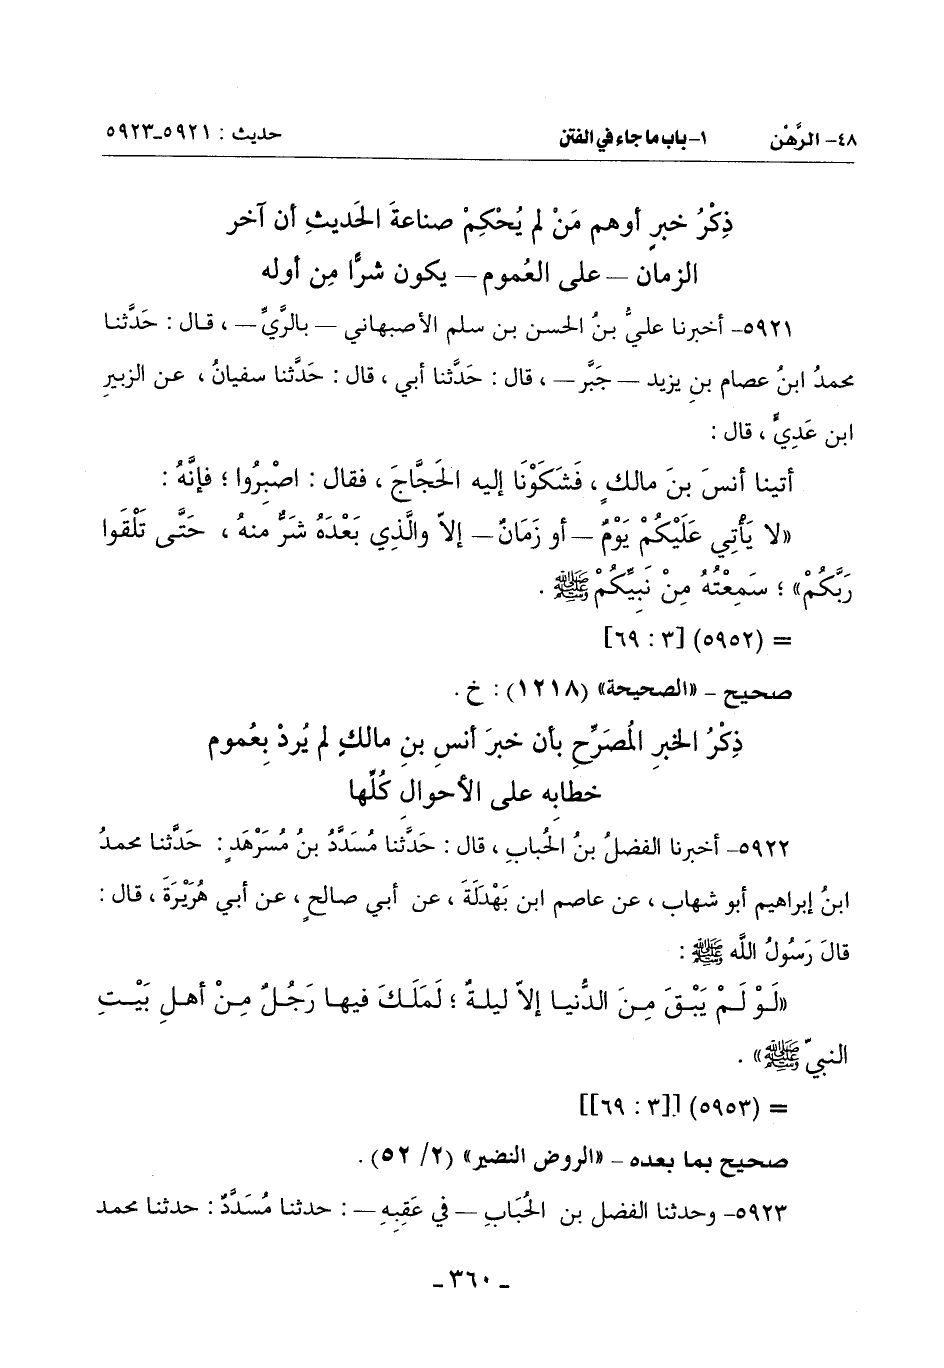 ٤٨- الرَّهْن ١- باب ما جاء في الفتن حديث : ٥٩٢١-٥٩٢٣
ذِكْرُ خبرٍ أوهم مَنْ لم يُحْكِمْ صناعةَ الحَديثِ أن آخر
الزمان – على العُموم – يكون شرًّا مِن أوله
٥٩٢١- أخبرنا عليُّ بنُ الحسن بن سلم الأصبهاني – بالرَّيِّ – ، قال : حَدَّثنا
محمدُ ابنُ عصام بنِ يزيد – جَبَّر – ، قال : حَدَّثنا أبي ، قال : حَدَّثنا سفيانُ ، عن الزبيرِ
ابن عَدِيٍّ ، قال :
أتينا أنسَ بنَ مالكٍ ، فَشَكَوْنَا إليه الحَجَّاجَ ، فقال : اصْبِرُوا ؛ فإنَّهُ :
«لا يَأْتِي عَلَيْكُمْ يَوْمٌ – أو زَمَانٌ – إلاَّ والَّذِي بَعْدَهُ شَرٌّ منهُ ، حَتَّى تَلْقَوا
رَبَّكُمْ» ؛ سَمِعْتُهُ مِنْ نَبِيِّكُمْ ﷺ .
= (٥٩٥٢) [٣ : ٦٩]
صحيح - «الصحيحة» (١٢١٨) : خ .
ذِكْرُ الخبرِ المُصَرِّحِ بأن خبرَ أنسِ بنِ مالكٍ لم يُردْ بِعُموم
خطابِه على الأحوالِ كُلِّها
٥٩٢٢- أخبرنا الفضلُ بنُ الحُبابِ ، قال : حَدَّثنا مُسَدَّدُ بنُ مُسَرْهَدٍ : حَدَّثنا محمدُ
ابنُ إبراهيم أبو شهاب ، عن عاصم ابن بَهْدَلَةَ ، عن أبي صالحٍ ، عن أبي هُرَيْرَةَ ، قال :
قالَ رَسُولُ اللَّه ﷺ :
«لَوْ لَمْ يَبْقَ مِنَ الدُّنيا إلاَّ ليلةٌ ؛ لَمَلَكَ فيها رَجُلٌ مِنْ أهلِ بَيْتِ
النبيِّ ﷺ» .
= (٥٩٥٣) [[٣ : ٦٩]]
صحيح بما بعده - «الروض النضير» (٢/ ٥٢) .
٥٩٢٣- وحدثنا الفضل بن الحُبَابِ – في عَقِبِهِ – : حدثنا مُسَدَّدٌ : حدثنا محمد
- ٣٦٠ -